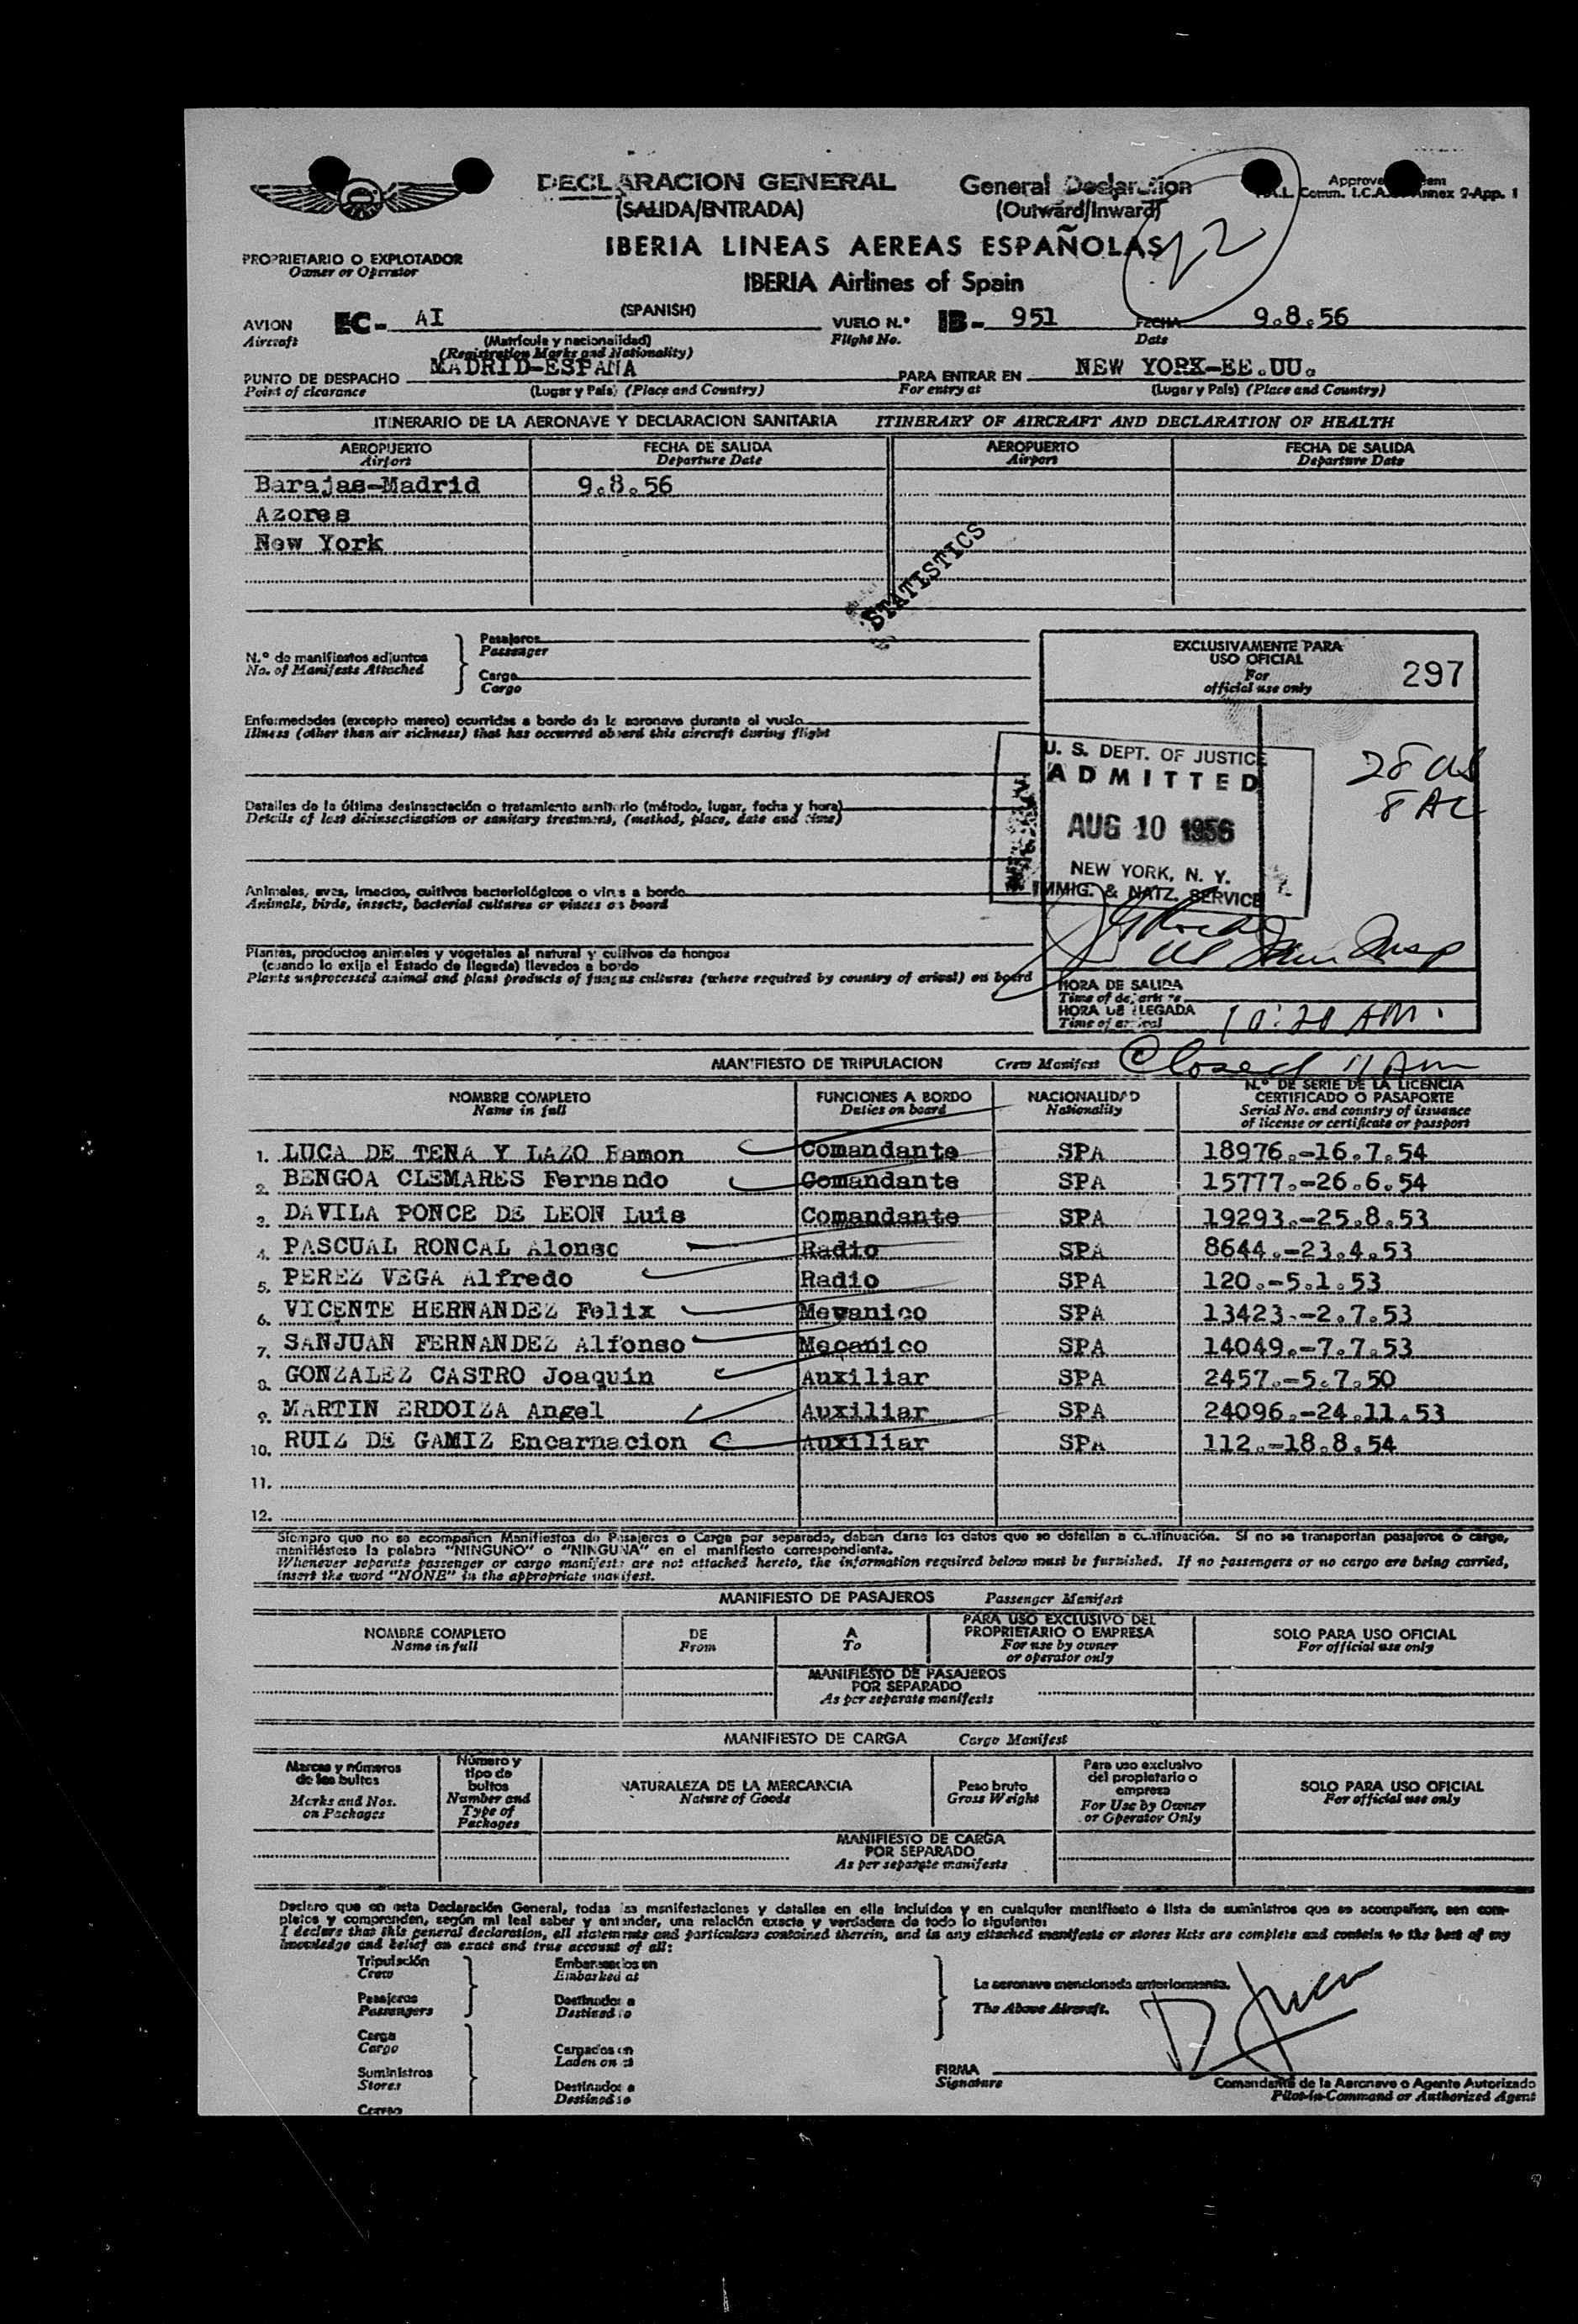 DECLARACION GENERAL General Declaration
(SALIDA/ENTRADA) (Outward/Inward)
Comm. I.C.A. Annex 9-App. 1
12
IBERIA LINEAS AEREAS ESPAÑOLAS
PROPRIETARIO O EXPLOTADOR
Owner or Operator
IBERIA Airlines of Spain
AVION EC- AI (SPANISH) VUELO N.º IB- 951 FECHA 9.8.56
Aircraft (Matrícula y nacionalidad) Flight No. Date
(Registration Marks and Nationality)
PUNTO DE DESPACHO MADRID-ESPAÑA PARA ENTRAR EN NEW YORK-EE.UU.
Point of clearance (Lugar y País) (Place and Country) For entry at (Lugar y País) (Place and Country)
ITINERARIO DE LA AERONAVE Y DECLARACION SANITARIA ITINERARY OF AIRCRAFT AND DECLARATION OF HEALTH
AEROPUERTO FECHA DE SALIDA AEROPUERTO FECHA DE SALIDA
Airport Departure Date Airport Departure Date
Barajas-Madrid 9.8.56
Azores
New York
STATISTICS
N.º de manifiestos adjuntos
No. of Manifests Attached
Pasajeros
Passenger
Carga
Cargo
EXCLUSIVAMENTE PARA
USO OFICIAL
For
official use only
297
Enfermedades (excepto mareo) ocurridas a bordo de la aeronave durante el vuelo
Illness (other than air sickness) that has occurred aboard this aircraft during flight
U. S. DEPT. OF JUSTICE
ADMITTED
AUG 10 1956
NEW YORK, N. Y.
IMMIG. & NATZ. SERVICE
28 US
8 AL
Detalles de la última desinsectación o tratamiento sanitario (método, lugar, fecha y hora)
Details of last disinsectisation or sanitary treatment, (method, place, date and time)
Animales, aves, insectos, cultivos bacteriológicos o virus a bordo
Animals, birds, insects, bacterial cultures or viruses on board
Plantas, productos animales y vegetales al natural y cultivos de hongos
(cuando lo exija el Estado de llegada) llevados a bordo
Plants unprocessed animal and plant products of fungus cultures (where required by country of arival) on board
HORA DE SALIDA
Time of departure
HORA DE LLEGADA
Time of arrival
10:20 AM.
MANIFIESTO DE TRIPULACION Crew Manifest Closed 11 Am
NOMBRE COMPLETO FUNCIONES A BORDO NACIONALIDAD N.º DE SERIE DE LA LICENCIA
CERTIFICADO O PASAPORTE
Name in full Duties on board Nationality Serial No. and country of issuance
of license or certificate or passport
1. LUCA DE TENA Y LAZO Ramon Comandante SPA 18976.-16.7.54
2. BENGOA CLEMARES Fernando Comandante SPA 15777.-26.6.54
3. DAVILA PONCE DE LEON Luis Comandante SPA 19293.-25.8.53
4. PASCUAL RONCAL Alonso Radio SPA 8644.-23.4.53
5. PEREZ VEGA Alfredo Radio SPA 120.-5.1.53
6. VICENTE HERNANDEZ Felix Mecanico SPA 13423.-2.7.53
7. SANJUAN FERNANDEZ Alfonso Mecanico SPA 14049.-7.7.53
8. GONZALEZ CASTRO Joaquin Auxiliar SPA 2457.-5.7.50
9. MARTIN ERDOIZA Angel Auxiliar SPA 24096.-24.11.53
10. RUIZ DE GAMIZ Encarnacion Auxiliar SPA 112.-18.8.54
11.
12.
Siempre que no se acompañen Manifiestos de Pasajeros o Carga por separado, deban darse los datos que se detallan a continuación. Si no se transportan pasajeros o carga,
manifiéstese la palabra "NINGUNO" o "NINGUNA" en el manifiesto correspondiente.
Whenever separate passenger or cargo manifests are not attached hereto, the information required below must be furnished. If no passengers or no cargo are being carried,
insert the word "NONE" in the appropriate manifest.
MANIFIESTO DE PASAJEROS Passenger Manifest
NOMBRE COMPLETO DE A PARA USO EXCLUSIVO DEL SOLO PARA USO OFICIAL
PROPRIETARIO O EMPRESA
Name in full From To For use by owner For official use only
or operator only
MANIFIESTO DE PASAJEROS
POR SEPARADO
As per separate manifests
MANIFIESTO DE CARGA Cargo Manifest
Marcas y números
de los bultos
Marks and Nos.
on Packages
Número y
tipo de
bultos
Number and
Type of
Packages
NATURALEZA DE LA MERCANCIA
Nature of Goods
Peso bruto
Gross Weight
Para uso exclusivo
del propietario o
empresa
For Use by Owner
or Operator Only
SOLO PARA USO OFICIAL
For official use only
MANIFIESTO DE CARGA
POR SEPARADO
As per separate manifests
Declaro que en esta Declaración General, todas las manifestaciones y detalles en ella incluídos y en cualquier manifiesto o lista de suministros que se acompañen, son com-
pletos y comprenden, según mi leal saber y entender, una relación exacta y verdadera de todo lo siguiente:
I declare that this general declaration, all statements and particulars contained therein, and in any attached manifests or stores lists are complete and contain to the best of my
knowledge and belief an exact and true account of all:
Tripulación
Crew
Pasajeros
Passengers
Embarcados en
Embarked at
Destinados a
Destined to
La aeronave mencionada anteriormente.
The Above Aircraft.
Carga
Cargo
Suministros
Stores
Correo
Cargados en
Laden on at
Destinados a
Destined to
FIRMA
Signature
Comandante de la Aeronave o Agente Autorizado
Pilot-in-Command or Authorized Agent